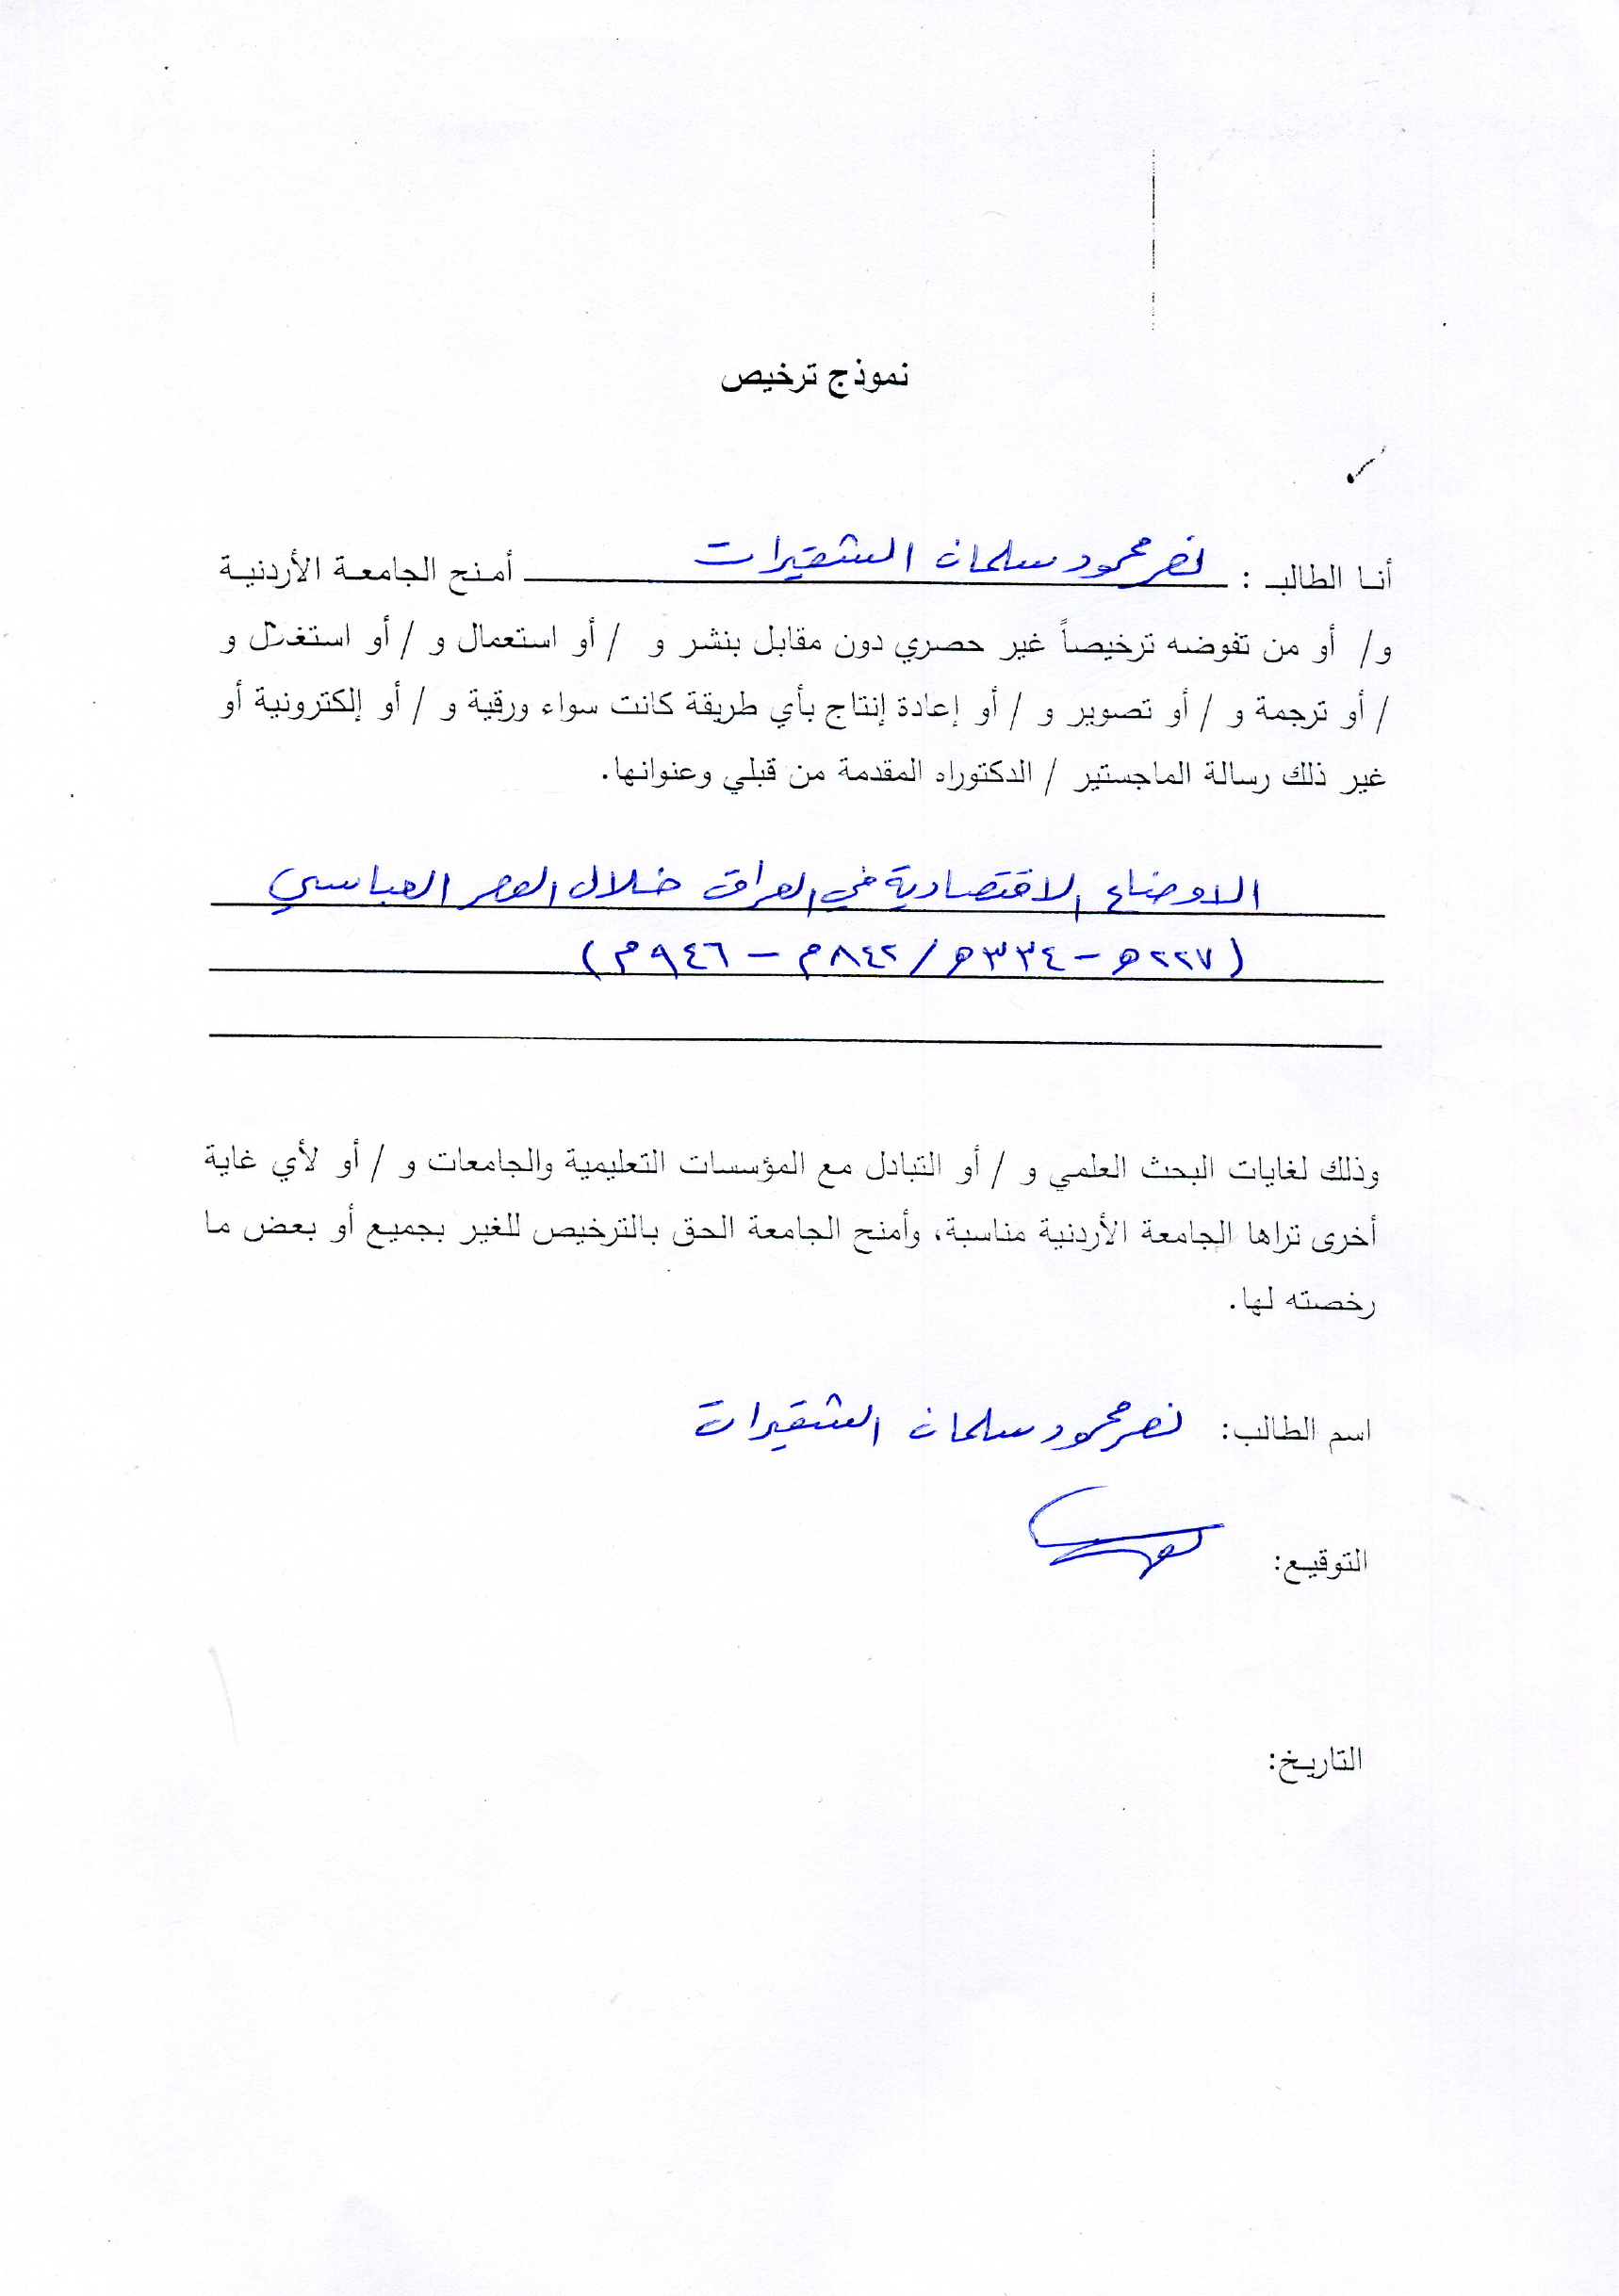 نموذج ترخيص
أنا الطالب : نصر محمود سلمان الشقيرات أمنح الجامعة الأردنية
و/ أو من تفوضه ترخيصاً غير حصري دون مقابل بنشر و / أو استعمال و / أو استغلال و
/ أو ترجمة و / أو تصوير و / أو إعادة إنتاج بأي طريقة كانت سواء ورقية و / أو إلكترونية أو
غير ذلك رسالة الماجستير / الدكتوراه المقدمة من قبلي وعنوانها.
الاوضاع الاقتصادية في العراق خلال العصر العباسي
(٢٢٧هـ - ٣٣٤هـ / ٨٤٢م - ٩٤٦م)
وذلك لغايات البحث العلمي و / أو التبادل مع المؤسسات التعليمية والجامعات و / أو لأي غاية
أخرى تراها الجامعة الأردنية مناسبة، وأمنح الجامعة الحق بالترخيص للغير بجميع أو بعض ما
رخصته لها.
اسم الطالب: نصر محمود سلمان الشقيرات
التوقيع:
التاريخ: